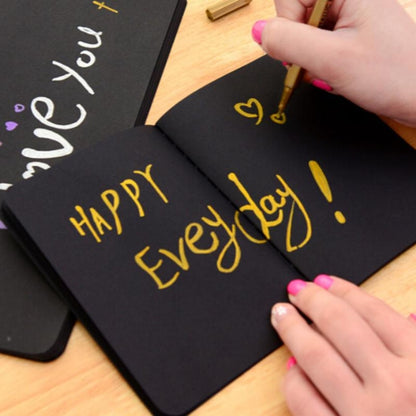 love you
HAPPY
Eveyday!